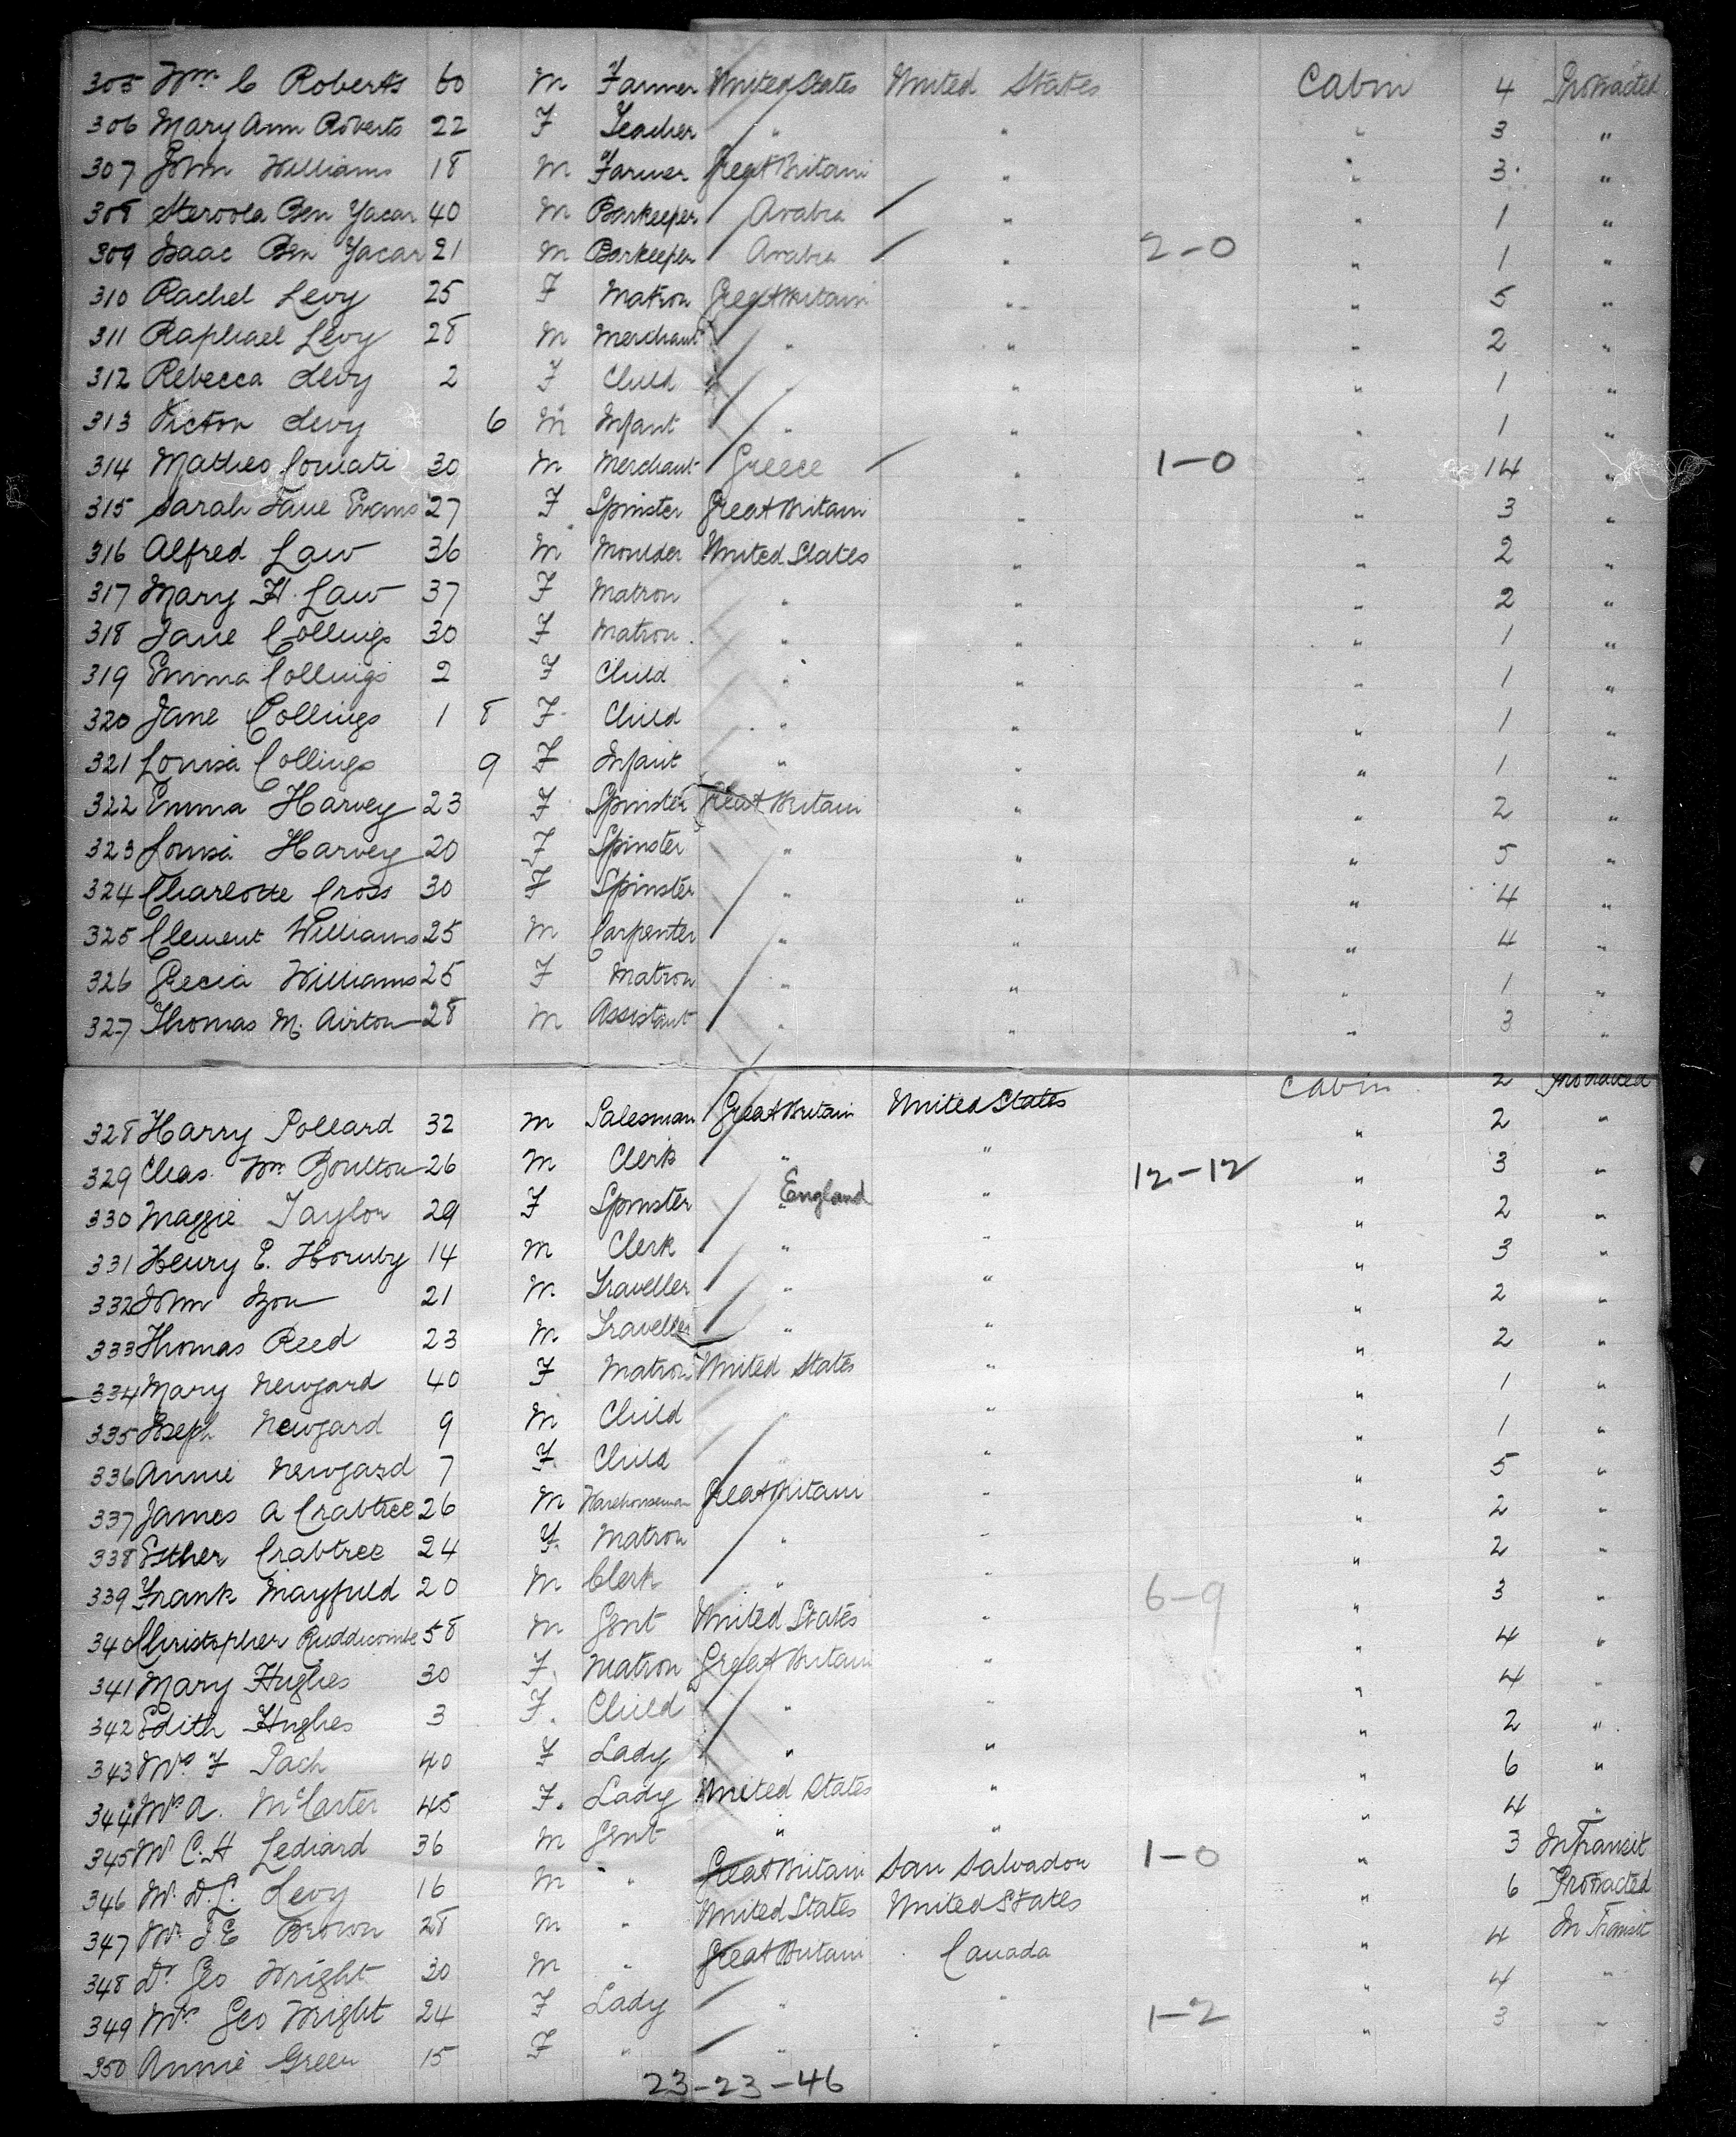 305 Wm C Roberts 60 M Farmer United States United States Cabin 4 Protracted
306 Mary Ann Roberts 22 F Teacher " " " 3 "
307 John Williams 18 M Farmer Great Britain " " 3 "
308 Ben Yacar 40 M Barkeeper Arabia " " 1 "
309 Isaac Ben Yacar 21 M Barkeeper Arabia " 2-0 " 1 "
310 Rachel Levy 25 F Matron Great Britain " " 5 "
311 Raphael Levy 28 M Merchant " " " 2 "
312 Rebecca Levy 2 F Child " " " 1 "
313 Victor Levy 6 M Infant " " " 1 "
314 Matheo 30 M Merchant Greece " 1-0 " 14 "
315 Sarah Jane Evans 27 F Spinster Great Britain " " 3 "
316 Alfred Law 36 M Moulder United States " " 2 "
317 Mary H. Law 37 F Matron " " " 2 "
318 Jane Collings 30 F Matron " " " 1 "
319 Emma Collings 2 F Child " " " 1 "
320 Jane Collings 1 8 F Child " " " 1 "
321 Louisa Collings 9 F Infant " " " 1 "
322 Emma Harvey 23 F Spinster Great Britain " " 2 "
323 Louisa Harvey 20 F Spinster " " " 5 "
324 Charlotte Cross 30 F Spinster " " " 4 "
325 Clement Williams 25 M Carpenter " " " 4 "
326 Grecia Williams 25 F Matron " " " 1 "
327 Thomas M. Airton 28 M Assistant " " " 3 "
328 Harry Pollard 32 M Salesman Great Britain United States Cabin 2 Protracted
329 Chas. Wm Boulton 26 M Clerk " " " 2 "
330 Maggie Taylor 29 F Spinster England " 12-12 " 3 "
331 Henry E. Hornby 14 M Clerk " " " 2 "
332 John 21 M Traveller " " " 3 "
333 Thomas Reed 23 M Traveller " " " 2 "
334 Mary Newgard 40 F Matron United States " " 2 "
335 Joseph Newgard 9 M Child " " " 1 "
336 Annie Newgard 7 F Child " " " 1 "
337 James A Crabtree 26 M Warehouseman Great Britain " " 5 "
338 Esther Crabtree 24 F Matron " " " 2 "
339 Frank Mayfield 20 M Clerk " " " 2 "
340 Christopher Ruddicombe 58 M Gent United States " 6-9 " 3 "
341 Mary Hughes 30 F Matron Great Britain " " 4 "
342 Edith Hughes 3 F. Child " " " 4 "
343 Mrs F Pach 40 F Lady " " " 2 "
344 Mrs A. McCarter 45 F. Lady United States " " 6 "
345 Mr C.H Lediard 36 M Gent " " " 4 "
346 Mr. D.L. Levy 16 M " Great Britain San Salvador 1-0 " 3 In Transit
347 Mr. J E Brown 28 M " United States United States " 6 Protracted
348 Dr Geo Wright 30 M " Great Britain Canada " 4 In Transit
349 Mrs Geo Wright 24 F Lady " " 1-2 " 4 "
350 Annie Green 15 F " " " " 3 "
23-23-46